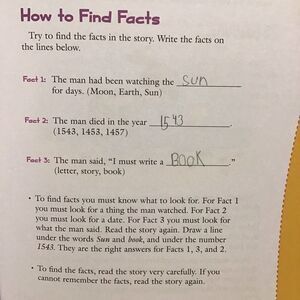 How to Find Facts
Try to find the facts in the story. Write the facts on
the lines below.
Fact 1: The man had been watching the sun
for days. (Moon, Earth, Sun)
Fact 2: The man died in the year 1543.
(1543, 1453, 1457)
Fact 3: The man said, "I must write a BOOK."
(letter, story, book)
• To find facts you must know what to look for. For Fact 1
you must look for a thing the man watched. For Fact 2
you must look for a date. For Fact 3 you must look for
what the man said. Read the story again. Draw a line
under the words Sun and book, and under the number
1543. They are the right answers for Facts 1, 3, and 2.
• To find the facts, read the story very carefully. If you
cannot remember the facts, read the story again.